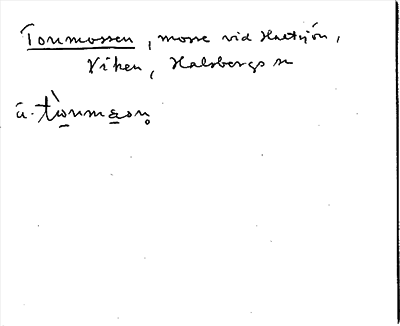 Tonmossen, mosse vid Haltsjön,
Viken, Halsbergs sn
u. tònmåsọn̥